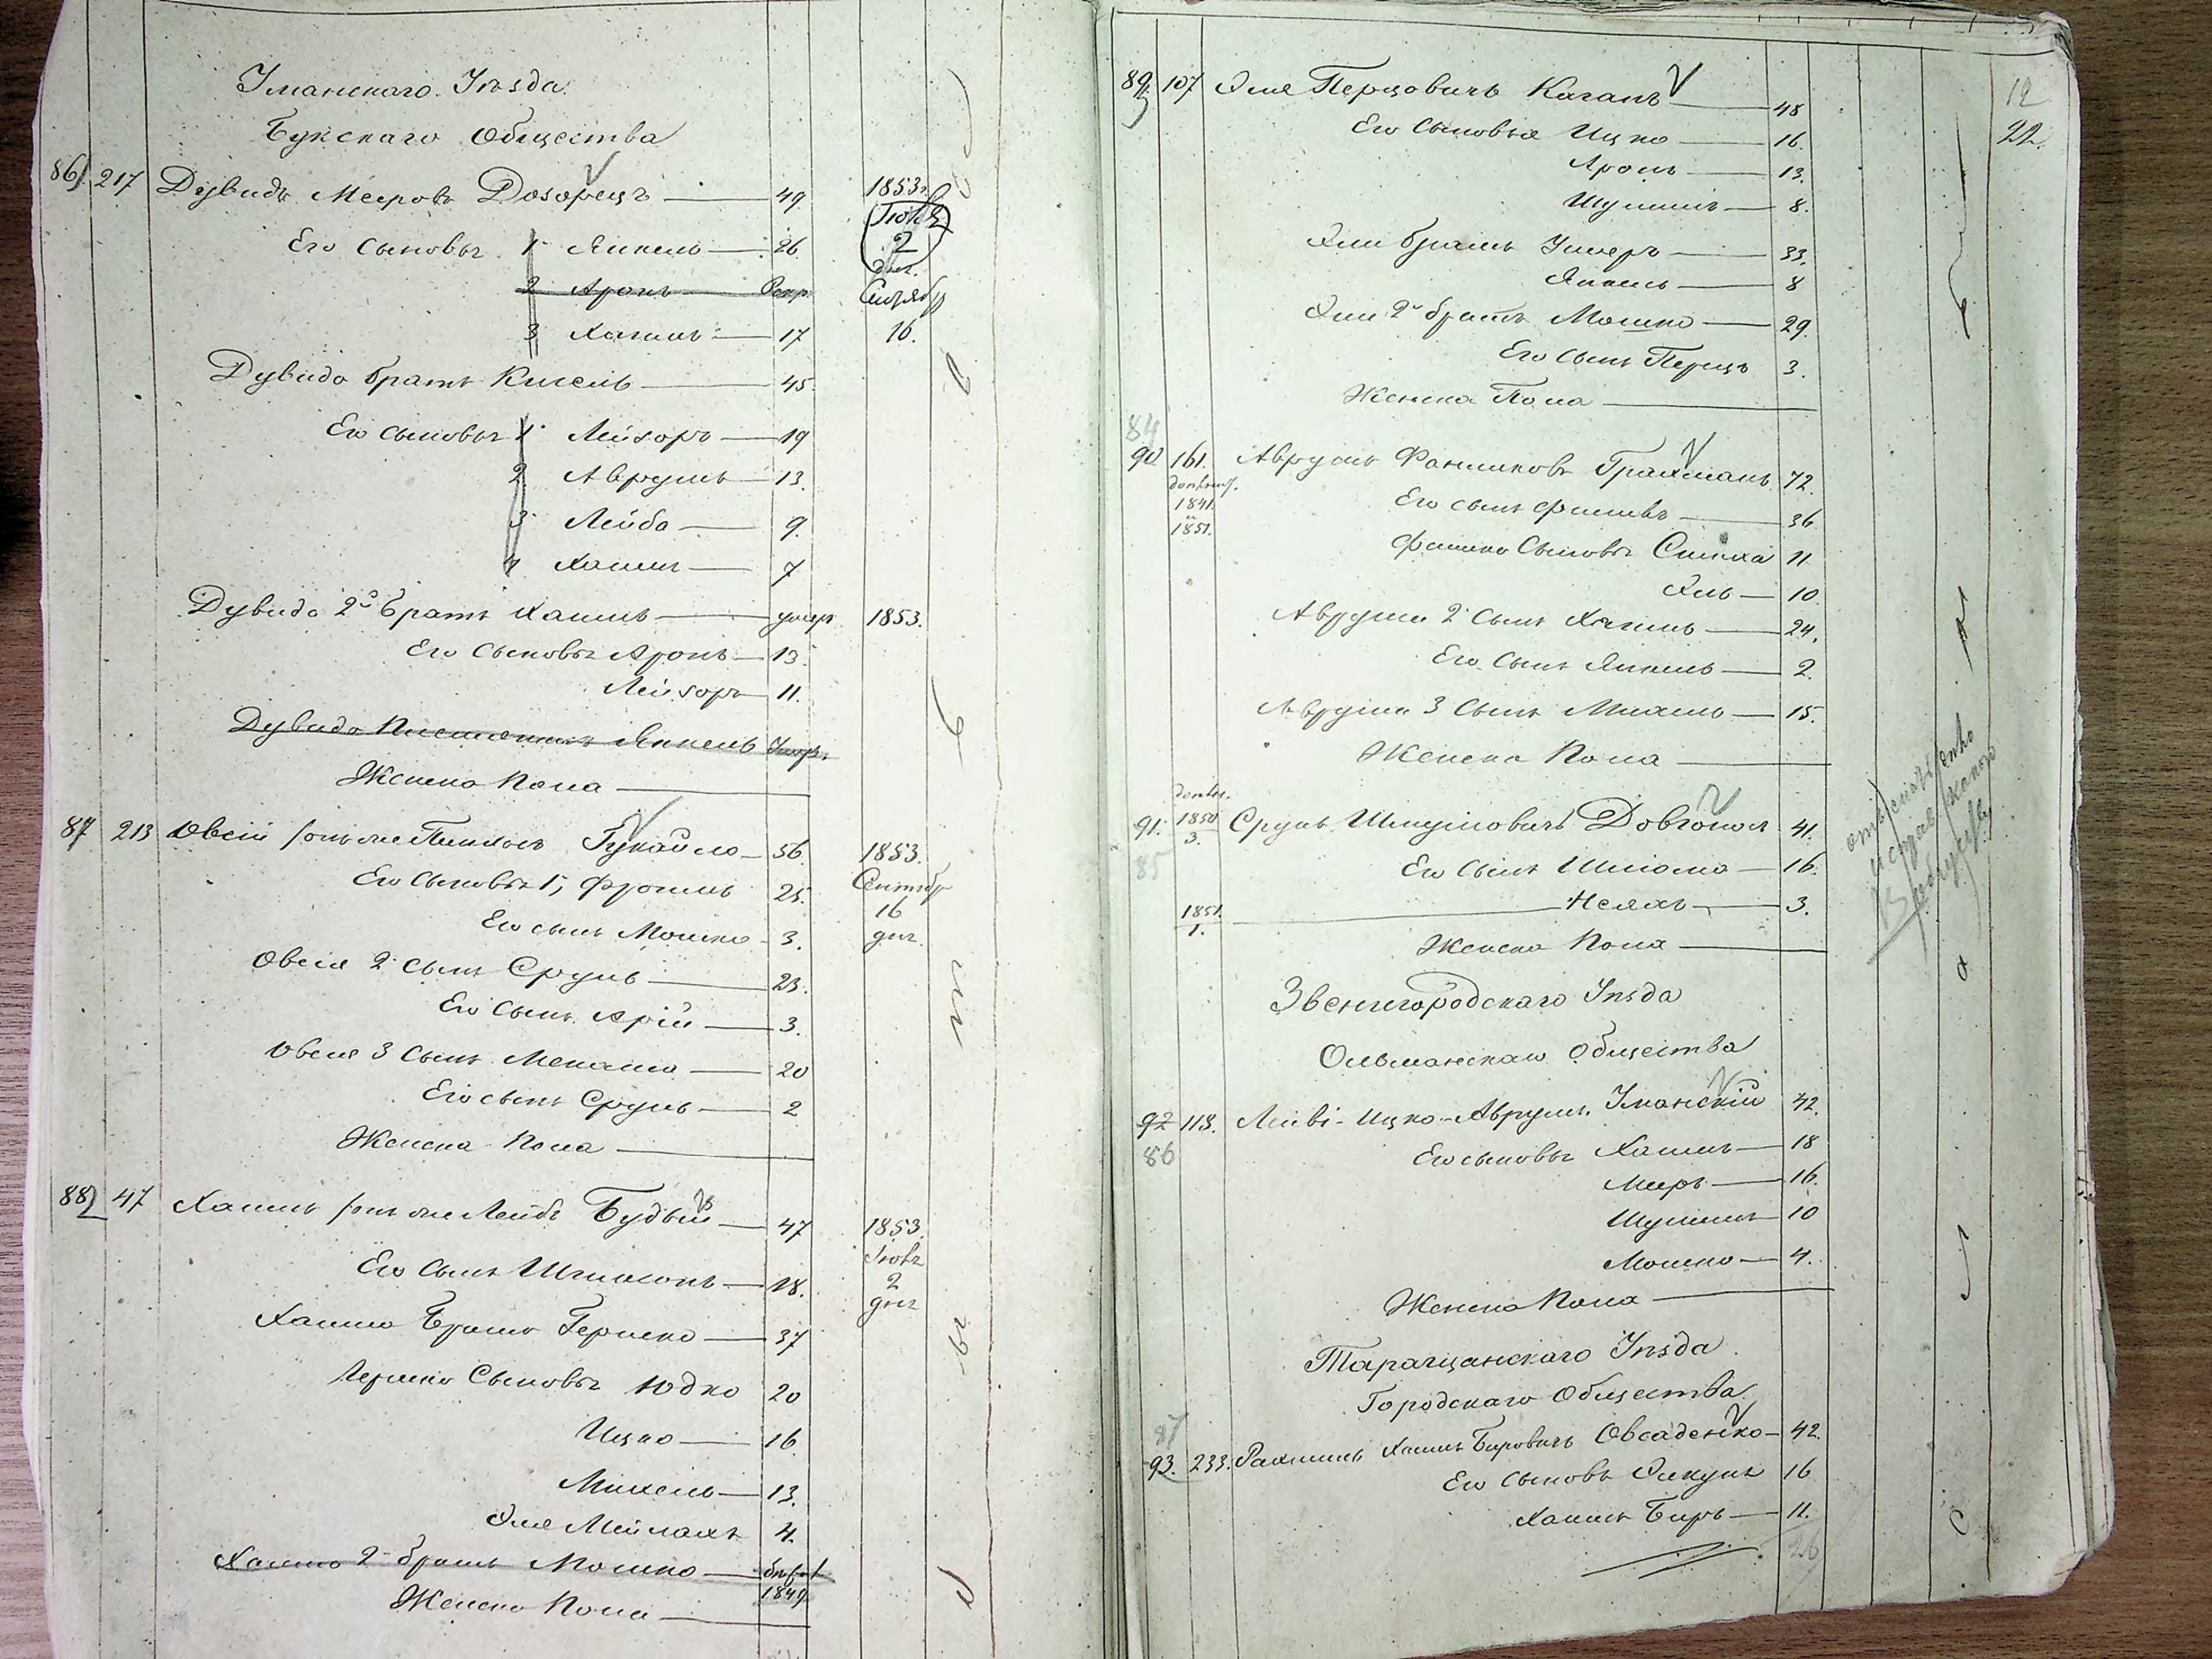 Уманскаго Уѣзда
Букскаго Общества
86) 217 Дувидъ Меировъ Дозорецъ 49 1853 г.
Его Сыновья 1 Янкель 26 2
2 Аронъ Рекр. Сентябр
3 Хаимъ 17 16.
Дувида братъ Кисель 45
Его сыновья 1 Лейзоръ 19
2 Аврумъ 13.
3 Лейба 9.
4 Хаимъ 7
Дувида 2й Братъ Хаимъ умеръ 1853.
Его Сыновья Аронъ 13.
Лейзоръ 11.
Дувида Племянникъ Янкель Умеръ
Женска Пола
87 213 Овсій Пинхасъ Гукайло 56 1853.
Его Сыновья 1, Фроимъ 25. Сентябр
Его сынъ Мошко 3. 16 дня.
Овсія 2 Сынъ Сруль 23.
Его Сынъ Арій 3.
Овсія 3 Сынъ Менаша 20
Его сынъ Сруль 2
Женска Пола
88) 47 Хаимъ Лейбъ Будый 47 1853.
Его Сынъ Шимонъ 18. 2 дня
Хаима Братъ Гершко 37
Гершка Сыновья Юдко 20
Ицко 16
Михель 13.
Эля Мейлахъ 4.
Хаима 2й братъ Мошко 1849
Женска Пола
12
22.
89) 107 Эля Перцовичъ Каганъ 48
Его Сыновья Ицко 16.
Аронъ 13.
Шулимъ 8.
Эли братъ Ушеръ 33.
Янкель 8
Эли 2й братъ Мошко 29
Его Сынъ Перецъ 3.
Женска Пола
84
90 161. Аврумъ Фаликовъ Грахманъ 72.
1841 и 1851. Его сынъ Фишель 36
Фишеля Сыновья Симха 11
Эль 10
Аврума 2 Сынъ Хаимъ 24.
Его Сынъ Янкель 2.
Аврума 3 Сынъ Михель 15.
Женска Пола
91. 1850 3. Сруль Шмулиовичъ Довгопол 41.
85 Его Сынъ Шлиома 16.
1851. 1. Нелехъ 3.
Женска Пола
Звенигородскаго Уѣзда
Ольшанскаго Общества
92 113. Лейбъ-Ицко-Аврумъ Уманскій 42.
86 Его сыновья Хаимъ 18
Меиръ 16.
Шулимъ 10
Мошко 4.
Женска Пола
Таращанскаго Уѣзда
Городскаго Общества
87
93. 233. Рахмиль Хаимъ Беровичъ Овсаденко 42.
Его Сыновья 16
Хаимъ Беръ 11.